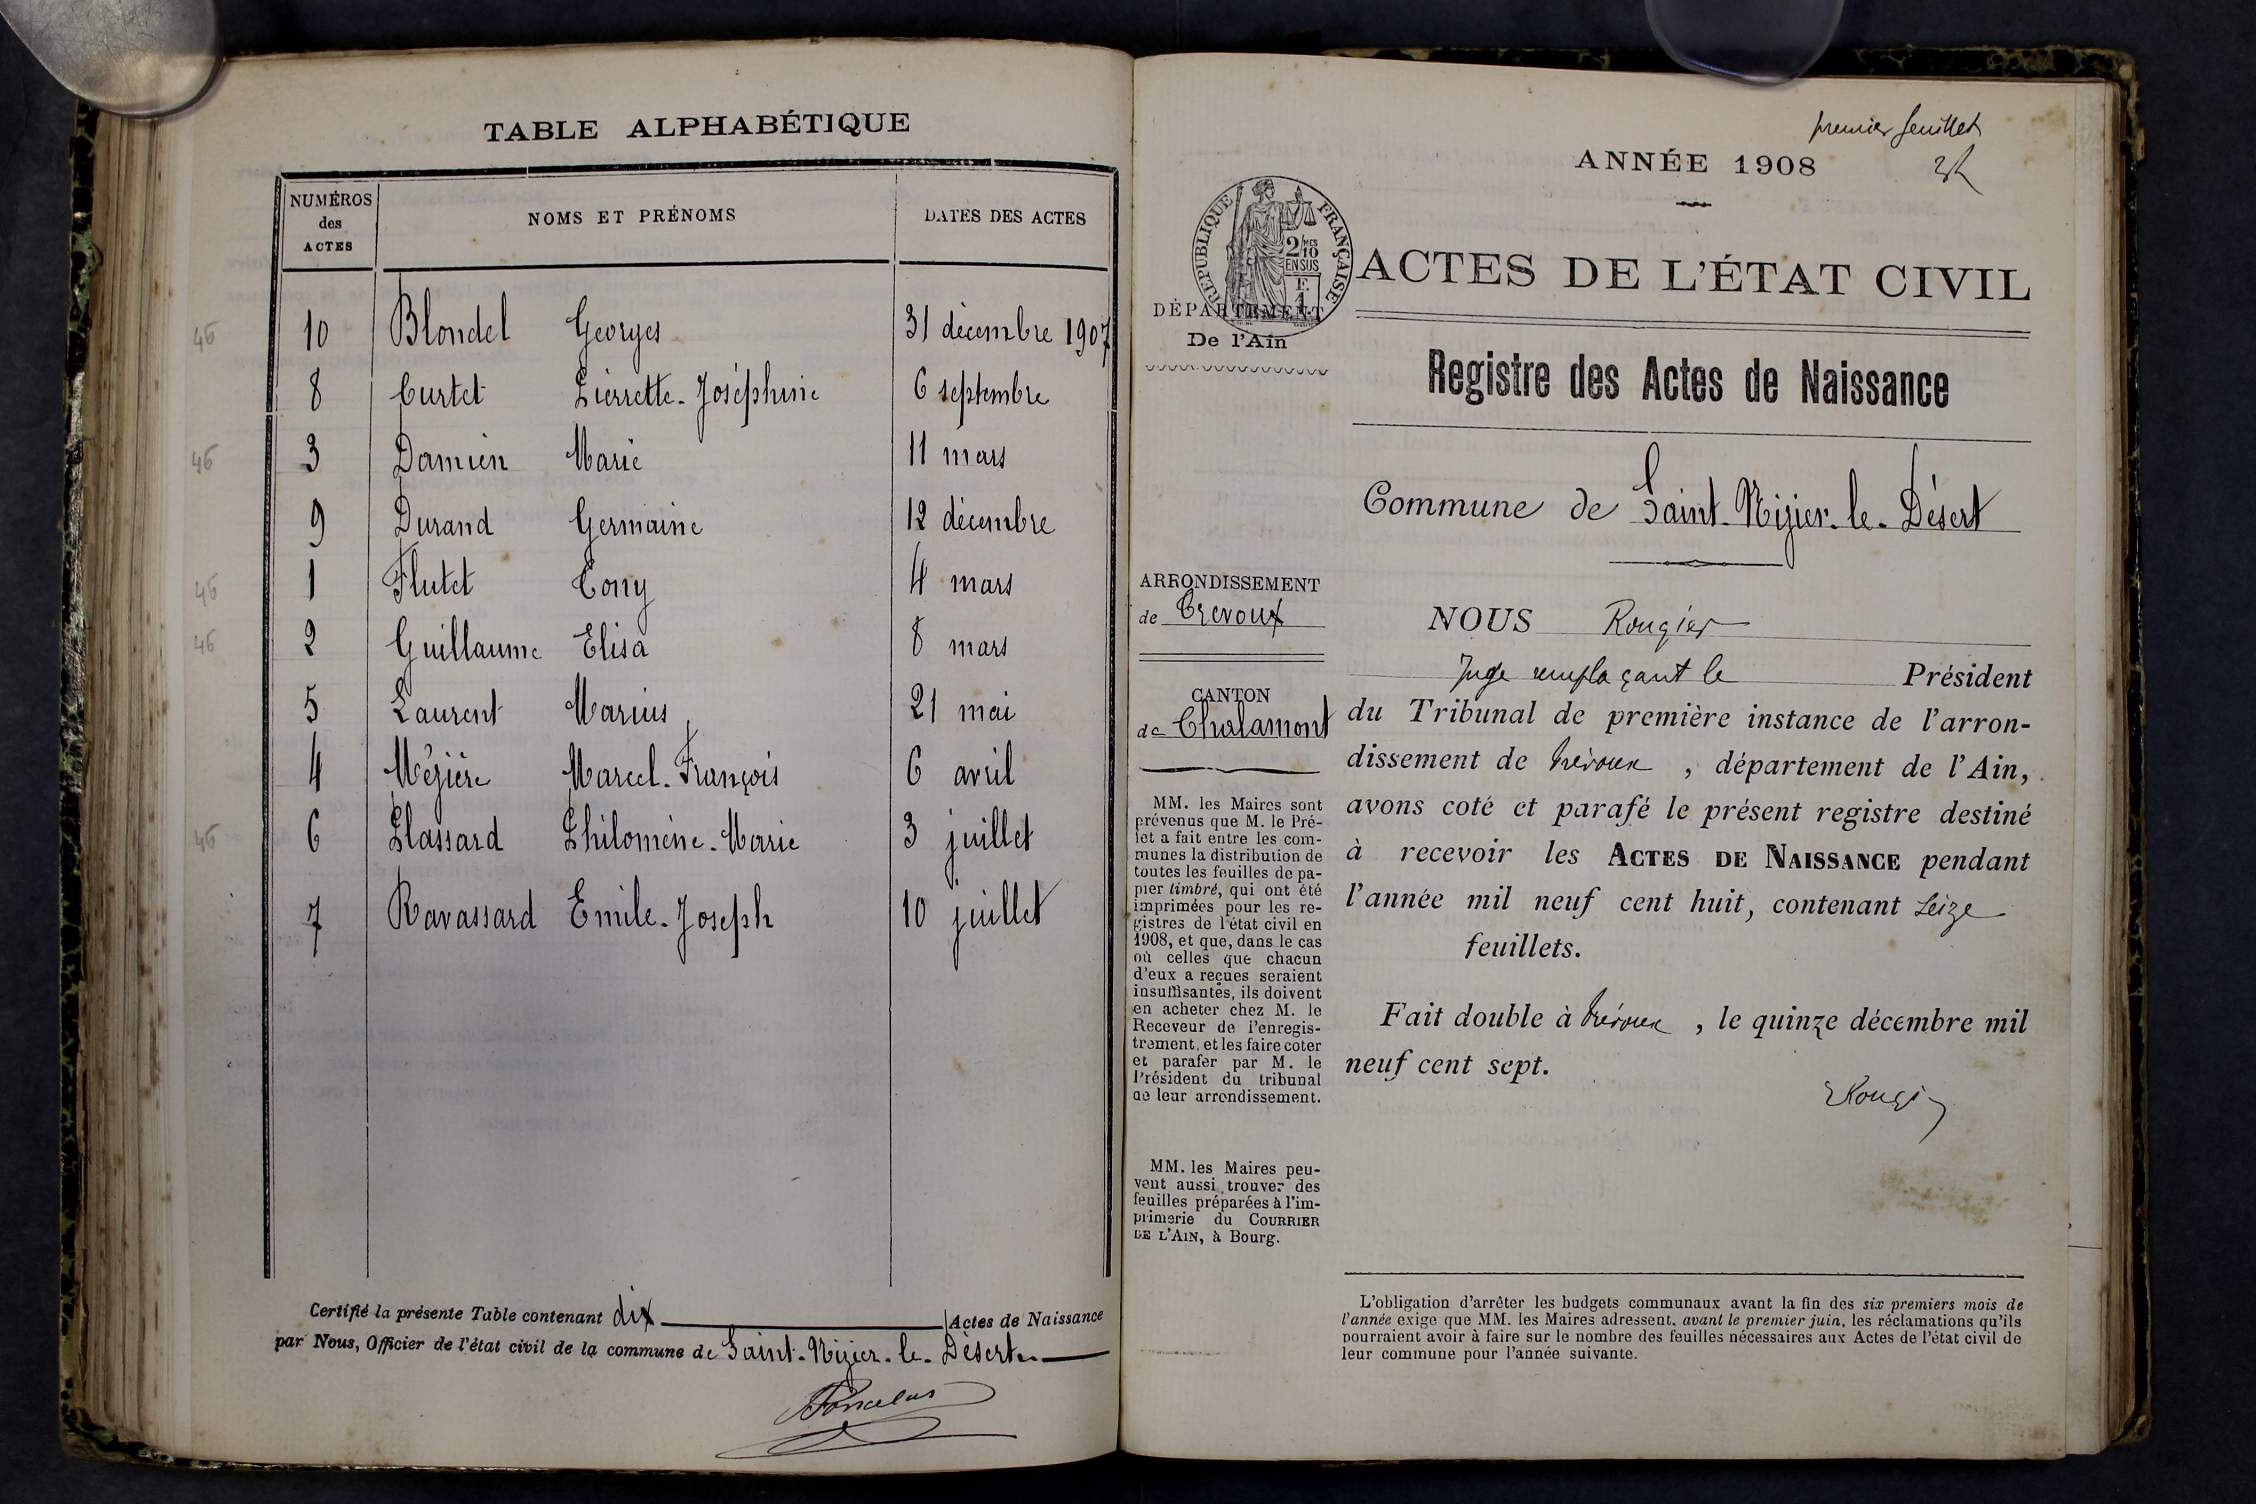 TABLE ALPHABÉTIQUE
NUMÉROS des ACTES NOMS ET PRÉNOMS DATES DES ACTES
46 10 Blondel Georges 31 décembre 1907
8 Curtet Pierrette-Joséphine 6 septembre
46 3 Damien Marie 11 mars
9 Durand Germaine 12 décembre
46 1 Flutet Tony 4 mars
46 2 Guillaume Elisa 8 mars
5 Laurent Marius 21 mai
4 Mézière Marcel-François 6 avril
46 6 Plassard Philomène-Marie 3 juillet
7 Ravassard Emile-Joseph 10 juillet
Certifié la présente Table contenant dix Actes de Naissance
par Nous, Officier de l'état civil de la commune de Saint-Nizier-le-Désert
premier feuillet
ANNÉE 1908
RÉPUBLIQUE FRANÇAISE
2/10 MES
EN SUS
F.
1
ACTES DE L'ÉTAT CIVIL
DÉPARTEMENT
De l'Ain
Registre des Actes de Naissance
Commune de Saint-Nizier-le-Désert
ARRONDISSEMENT
de Trevoux
CANTON
de Chalamont
MM. les Maires sont
prévenus que M. le Pré-
fet a fait entre les com-
munes la distribution de
toutes les feuilles de pa-
pier timbré, qui ont été
imprimées pour les re-
gistres de l'état civil en
1908, et que, dans le cas
où celles que chacun
d'eux a reçues seraient
insuffisantes, ils doivent
en acheter chez M. le
Receveur de l'enregis-
trement, et les faire coter
et parafer par M. le
Président du tribunal
de leur arrondissement.
MM. les Maires peu-
vent aussi trouver des
feuilles préparées à l'im-
primerie du COURRIER
DE L'AIN, à Bourg.
NOUS Rougier
Juge remplaçant le Président
du Tribunal de première instance de l'arron-
dissement de Trévoux, département de l'Ain,
avons coté et parafé le présent registre destiné
à recevoir les ACTES DE NAISSANCE pendant
l'année mil neuf cent huit, contenant seize
feuillets.
Fait double à Trévoux, le quinze décembre mil
neuf cent sept.
Rougier
L'obligation d'arrêter les budgets communaux avant la fin des six premiers mois de
l'année exige que MM. les Maires adressent, avant le premier juin, les réclamations qu'ils
pourraient avoir à faire sur le nombre des feuilles nécessaires aux Actes de l'état civil de
leur commune pour l'année suivante.